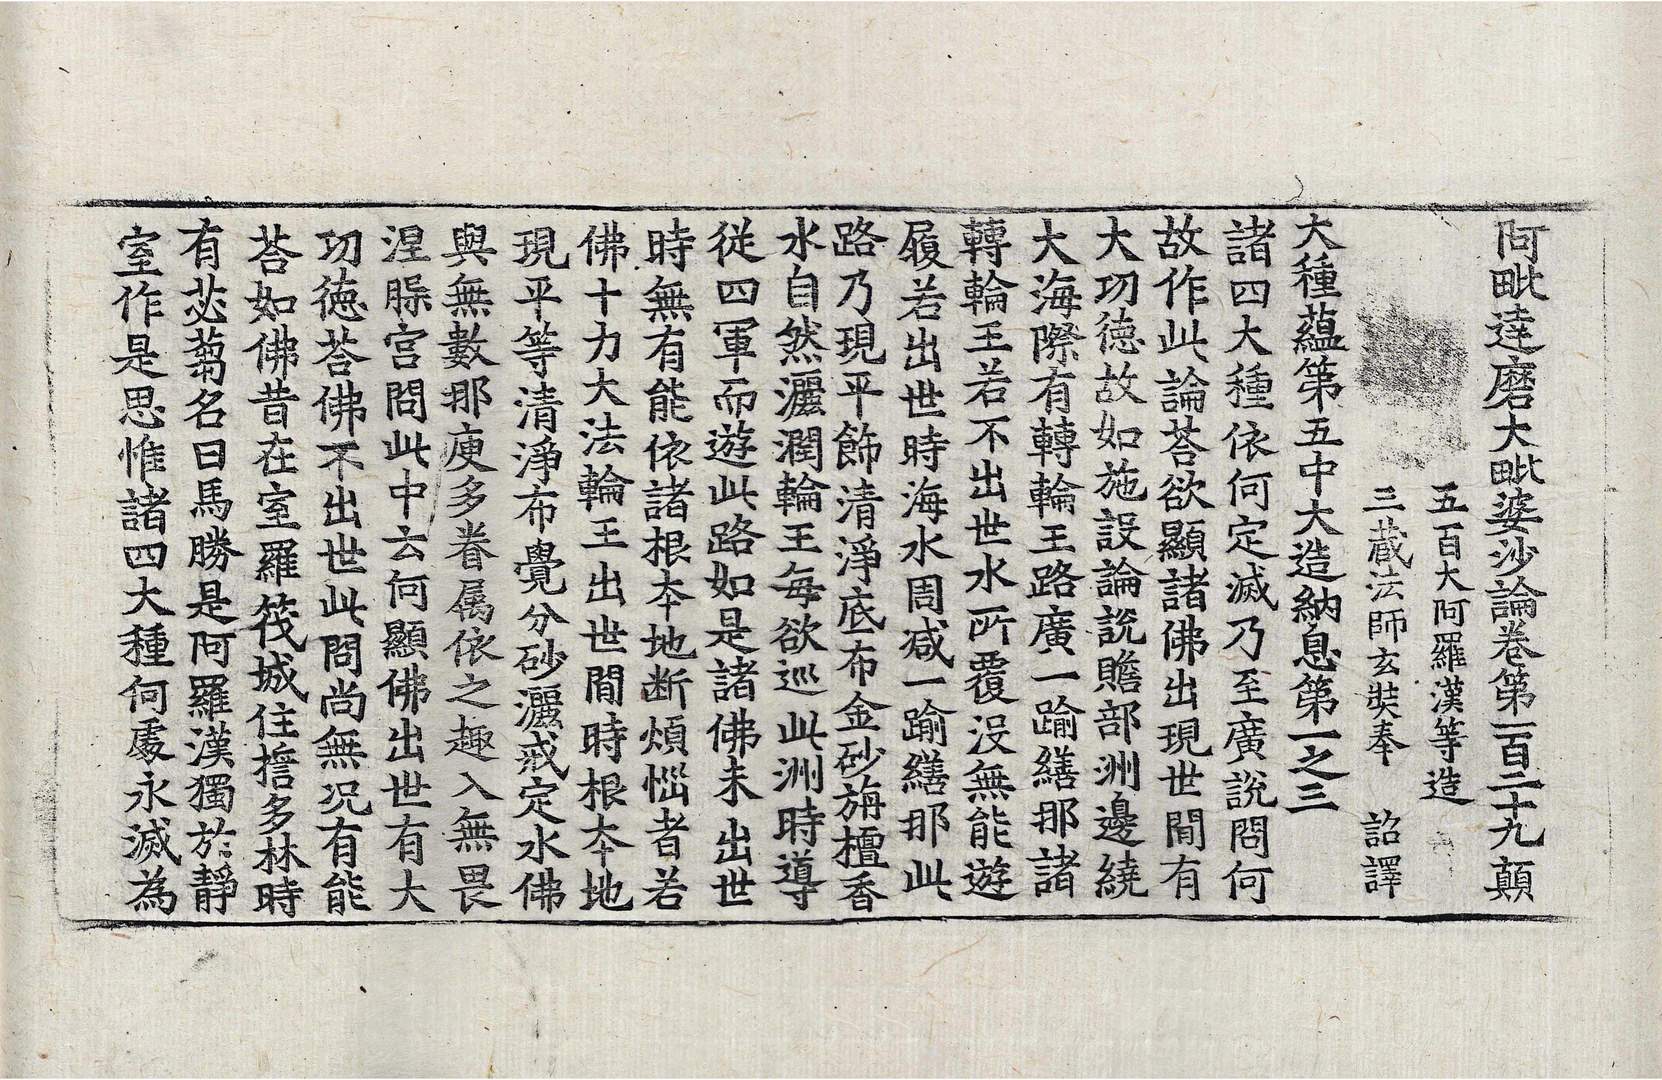 阿毗達磨大毗婆沙論卷第一百二十九 顛
五百大阿羅漢等造
三藏法師玄奘奉 詔譯
大種蘊第五中大造納息第一之三
諸四大種依何定滅乃至廣說問何
故作此論荅欲顯諸佛出現世間有
大功德故如施設論說贍部洲邊繞
大海際有轉輪王路廣一踰繕那諸
轉輪王若不出世水所覆沒無能遊
履若出世時海水周減一踰繕那此
路乃現平飾清淨底布金砂旃檀香
水自然灑潤輪王每欲巡此洲時導
從四軍而遊此路如是諸佛未出世
時無有能依諸根本地断煩惱者若
佛十力大法輪王出世間時根本地
現平等清淨布覺分砂灑戒定水佛
與無數那庾多眷屬依之趣入無畏
涅槃宮問此中云何顯佛出世有大
功德荅佛不出世此問尚無况有能
荅如佛昔在室羅筏城住誓多林時
有苾蒭名曰馬勝是阿羅漢獨於靜
室作是思惟諸四大種何處永滅為